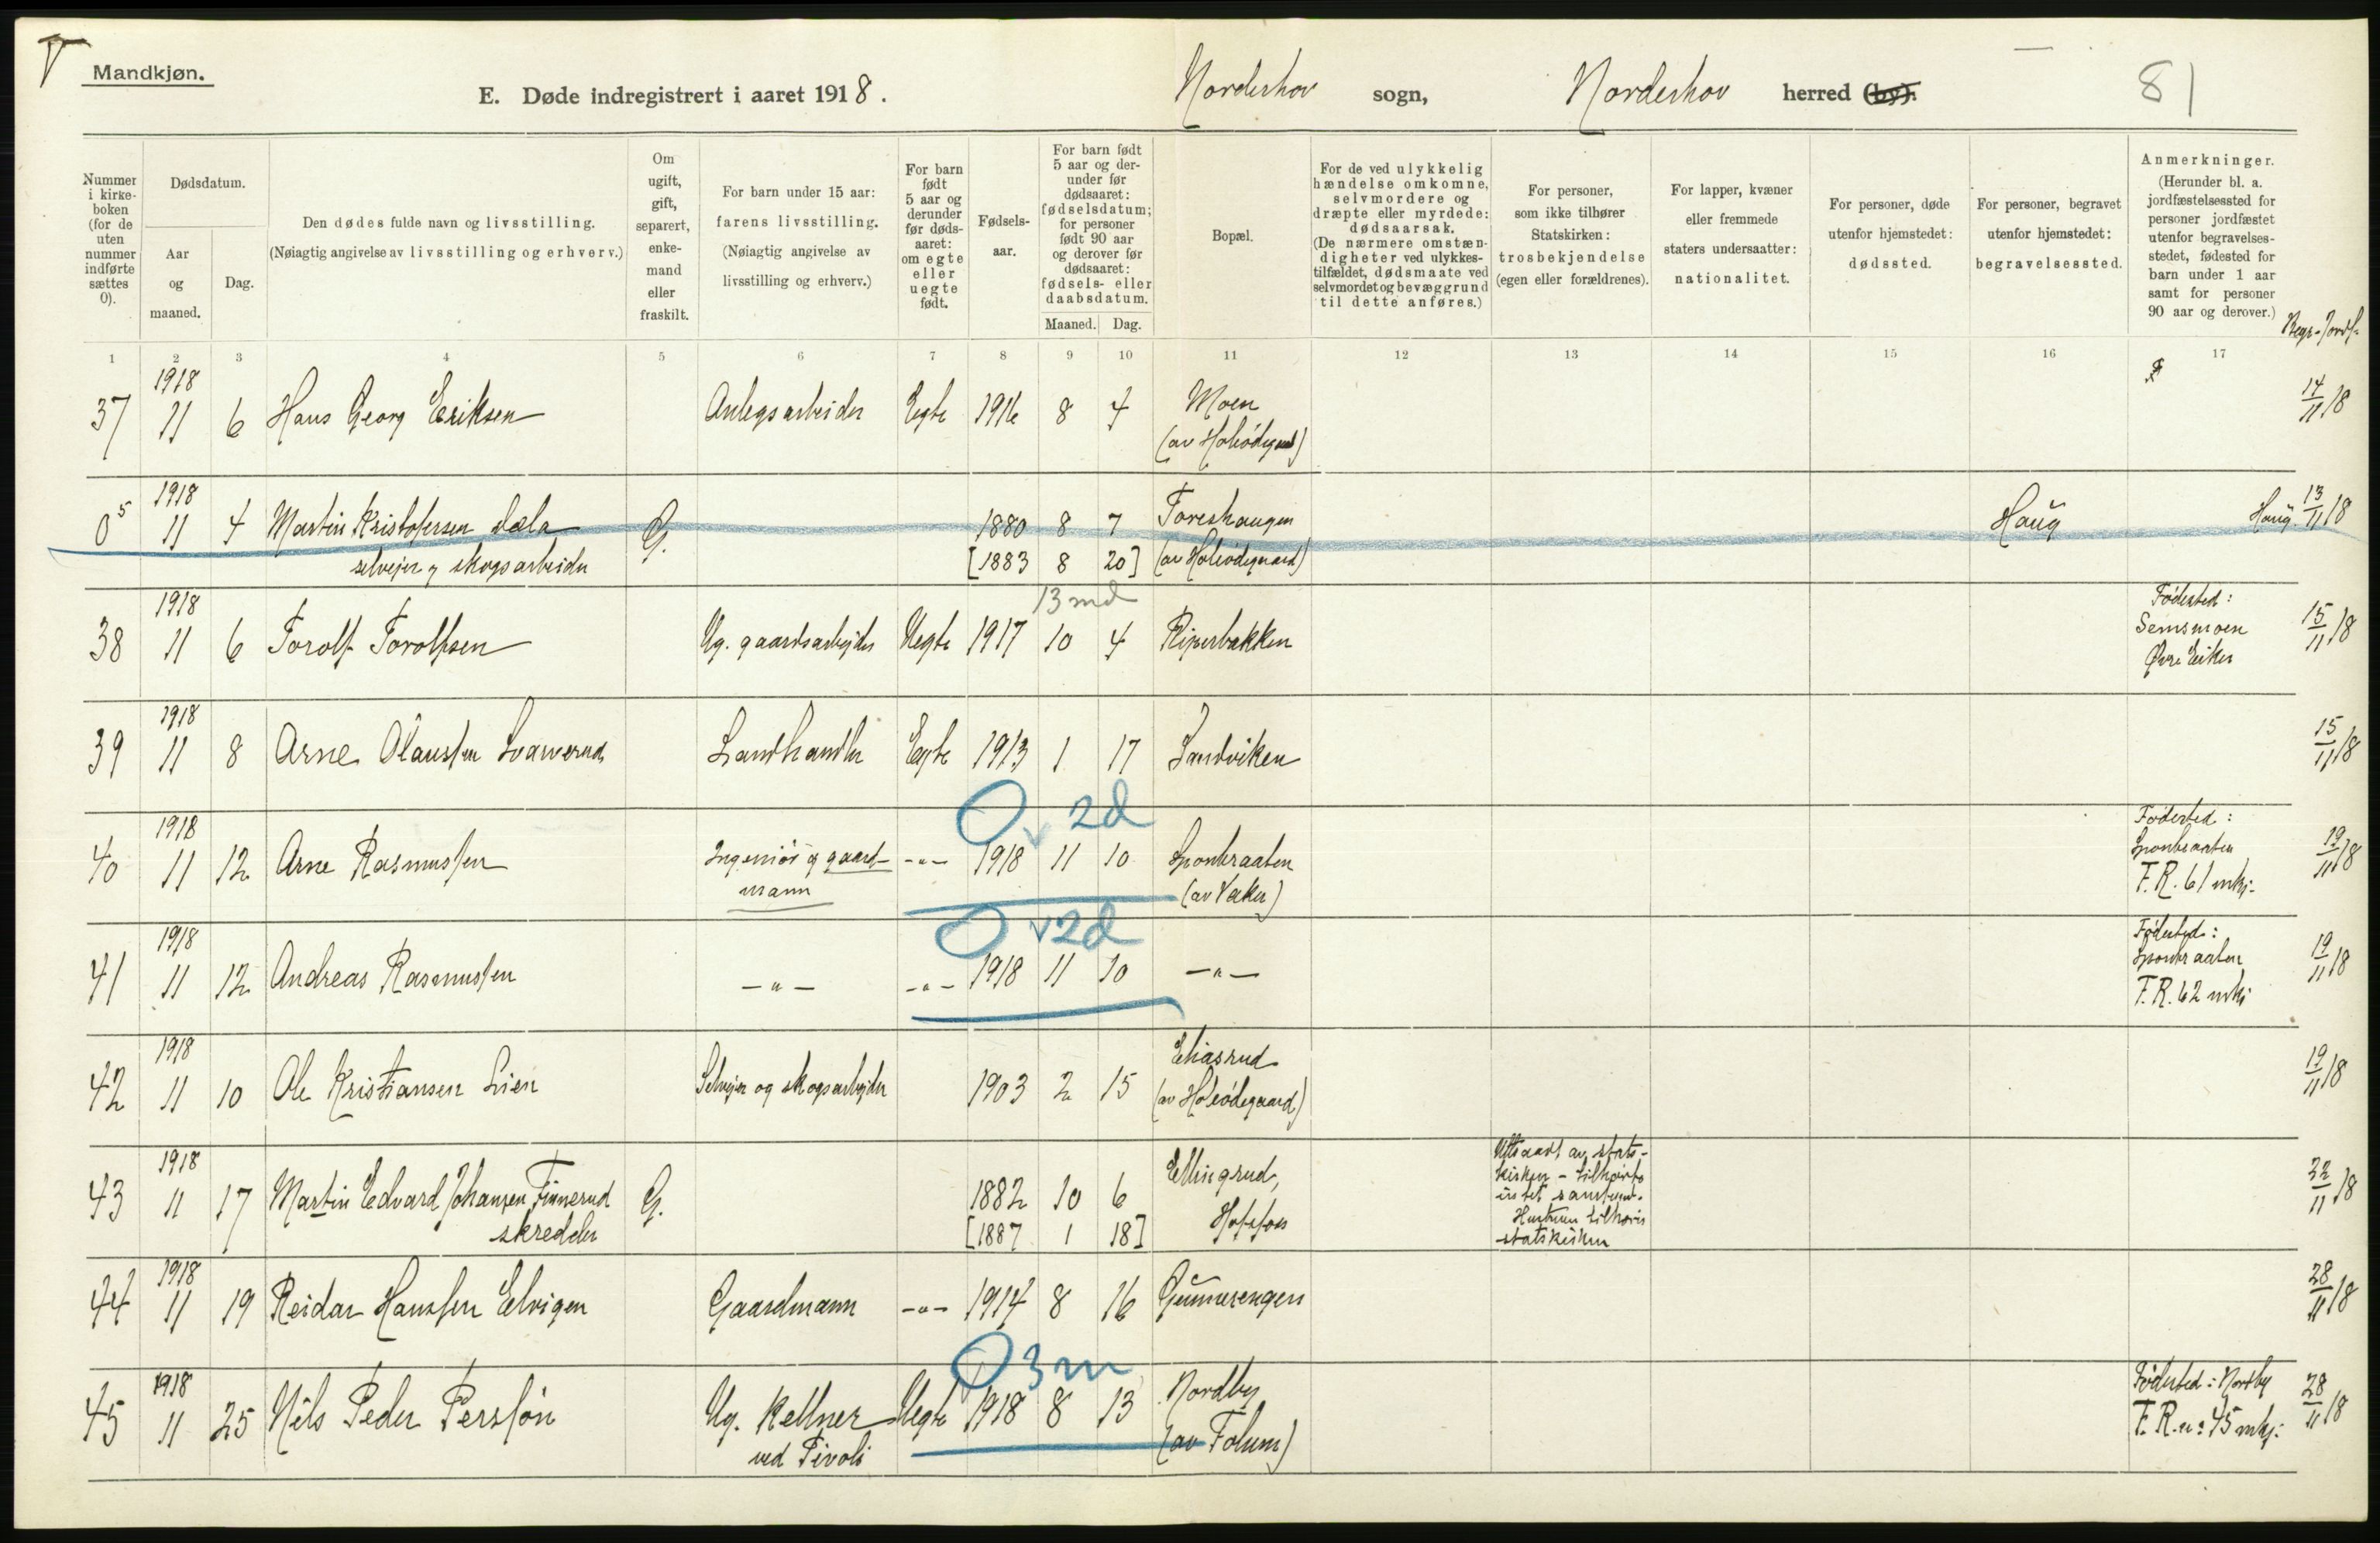 Mandkjøn.
E. Døde indregistrert i aaret 1918.
Norderhov sogn, Norderhov herred (by).
81
Nummer i kirkeboken (for de uten nummer indførte sættes 0).
Dødsdatum.
Aar og maaned.
Dag.
Den dødes fulde navn og livsstilling.
(Nøiagtig angivelse av livsstilling og erhverv.)
Om ugift, gift, separert, enkemand eller fraskilt.
For barn under 15 aar:
farens livsstilling.
(Nøiagtig angivelse av livsstilling og erhverv.)
For barn født 5 aar og derunder før dødsaaret: om egte eller uegte født.
Fødselsaar.
For barn født 5 aar og derunder før dødsaaret: fødselsdatum; for personer født 90 aar og derover før dødsaaret: fødsels- eller daabsdatum.
Maaned. Dag.
Bopæl.
For de ved ulykkelig hændelse omkomne, selvmordere og dræpte eller myrdede: dødsaarsak.
(De nærmere omstændigheter ved ulykkestilfældet, dødsmaate ved selvmordet og bevæggrund til dette anføres.)
For personer, som ikke tilhører Statskirken: trosbekjendelse (egen eller forældrenes).
For lapper, kvæner eller fremmede staters undersaatter: nationalitet.
For personer, døde utenfor hjemstedet: dødssted.
For personer, begravet utenfor hjemstedet: begravelsessted.
Anmerkninger.
(Herunder bl. a. jordfæstelsessted for personer jordfæstet utenfor begravelsesstedet, fødested for barn under 1 aar samt for personer 90 aar og derover.)
Begr.-Jordf.
1 2 3 4 5 6 7 8 9 10 11 12 13 14 15 16 17
37 1918 11 6 Hans Georg Eriksen Anlegsarbeider Egte 1916 8 4 Moen 14/11 18
0 5 1918 11 4 Martin Kristofersen Dæla G. 1880 8 7 Toreshaugen Haug Haug. 13/11 18
selveier og skogsarbeider [1883 8 20] (av Holeødegaard)
13 md
38 1918 11 6 Torolf Torolfsen Ug. gaardsarbeider Uegte 1917 10 4 Riperbakken Fødested: Semsmoen Øvre Eiker 15/11 18
39 1918 11 8 Arne Olaussen Svarverud Landhandler Egte 1913 1 17 Sandviken 15/11 18
0 2d
40 1918 11 12 Arne Rasmussen Ingeniør og gaardmann -"- 1918 11 10 Sponkraaten (av Vaker) Fødested: Sponkraaten F.R. 61 mkj. 19/11 18
0 2d
41 1918 11 12 Andreas Rasmussen -"- -"- 1918 11 10 -"- Fødested: Sponkraaten F.R. 62 mkj. 19/11 18
42 1918 11 10 Ole Kristiansen Lien Selveier og skogsarbeider 1903 2 15 Eliasrud (av Holeødegaard) 19/11 18
43 1918 11 17 Martin Edvard Johansen Finnerud G. 1882 10 6 Ellingsrud, Utt av statskirken - tilhørte intet samfund. Hustruen tilhører statskirken 22/11 18
skredder [1887 1 18] Hofsfos
44 1918 11 19 Reidar Hanssen Elvigen Gaardmann -"- 1914 8 16 Gunnerengen 28/11 18
0 3 m
45 1918 11 25 Nils Peder Perssøn Ug. Kellner ved Tivoli Uegte 1918 8 13 Nordby (av Tolum) Fødested: Nordby F.R. n: 45 mkj. 28/11 18